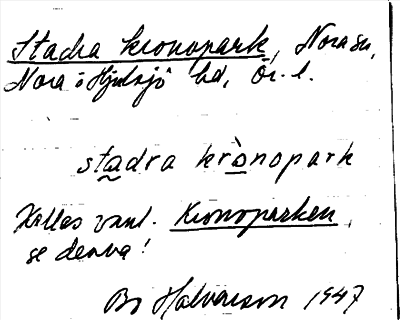 Stadra kronopark, Nora sn,
Nora o Hjulsjö hd, Ör. l.
sta̰dra krò̲nopark
Kallas vanl. Kronoparken,
se denna!
Bo Halvarson 1947